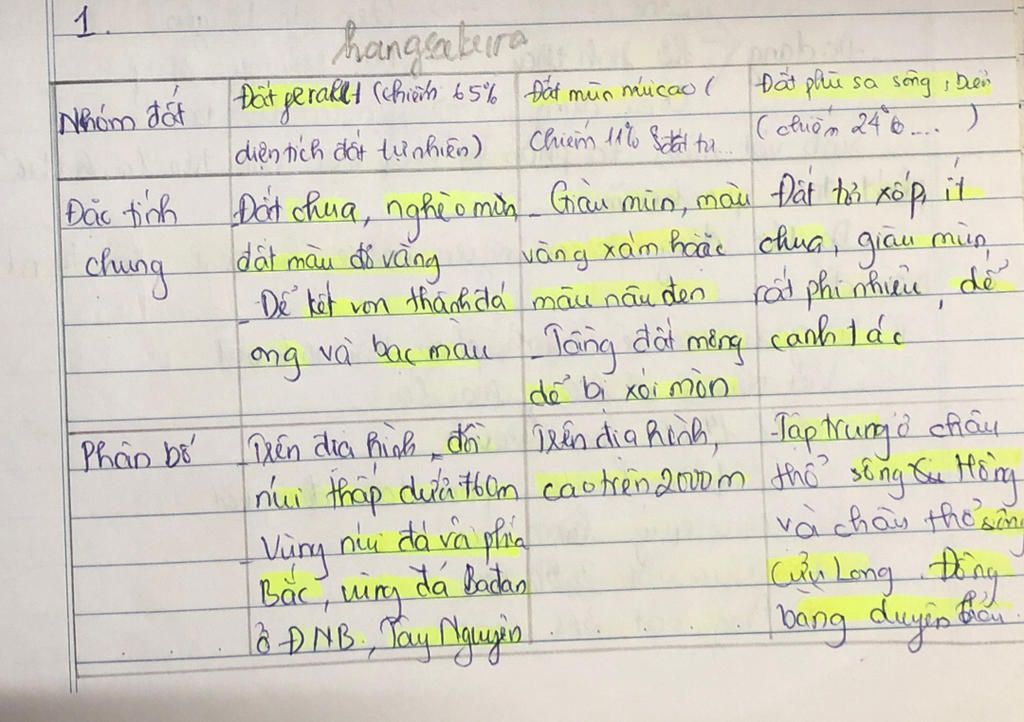 1.
hangsakura
Nhóm đất
Đất feralit (chiếm 65%
diện tích đất tự nhiên)
Đất mùn núi cao (
Chiếm 11% đất tự...
Đất phù sa sông, biển
(chiếm 24%....)
Đặc tính
chung
Đất chua, nghèo mùn
đất màu đỏ vàng
- Dễ kết von thành đá
ong và bạc màu
- Giàu mùn, màu
vàng xám hoặc
màu nâu đen
- Tầng đất mỏng
dễ bị xói mòn
Đất tơi xốp, ít
chua, giàu mùn
rất phì nhiêu, dễ
canh tác
Phân bố
- Trên địa hình đồi
núi thấp dưới 760m
- Vùng núi đá vôi phía
Bắc, vùng đá Badan
ở ĐNB, Tây Nguyên
Trên địa hình,
cao trên 2000m
- Tập trung ở châu
thổ sông Hồng
và châu thổ sông
Cửu Long. Đồng
bằng duyên hải.